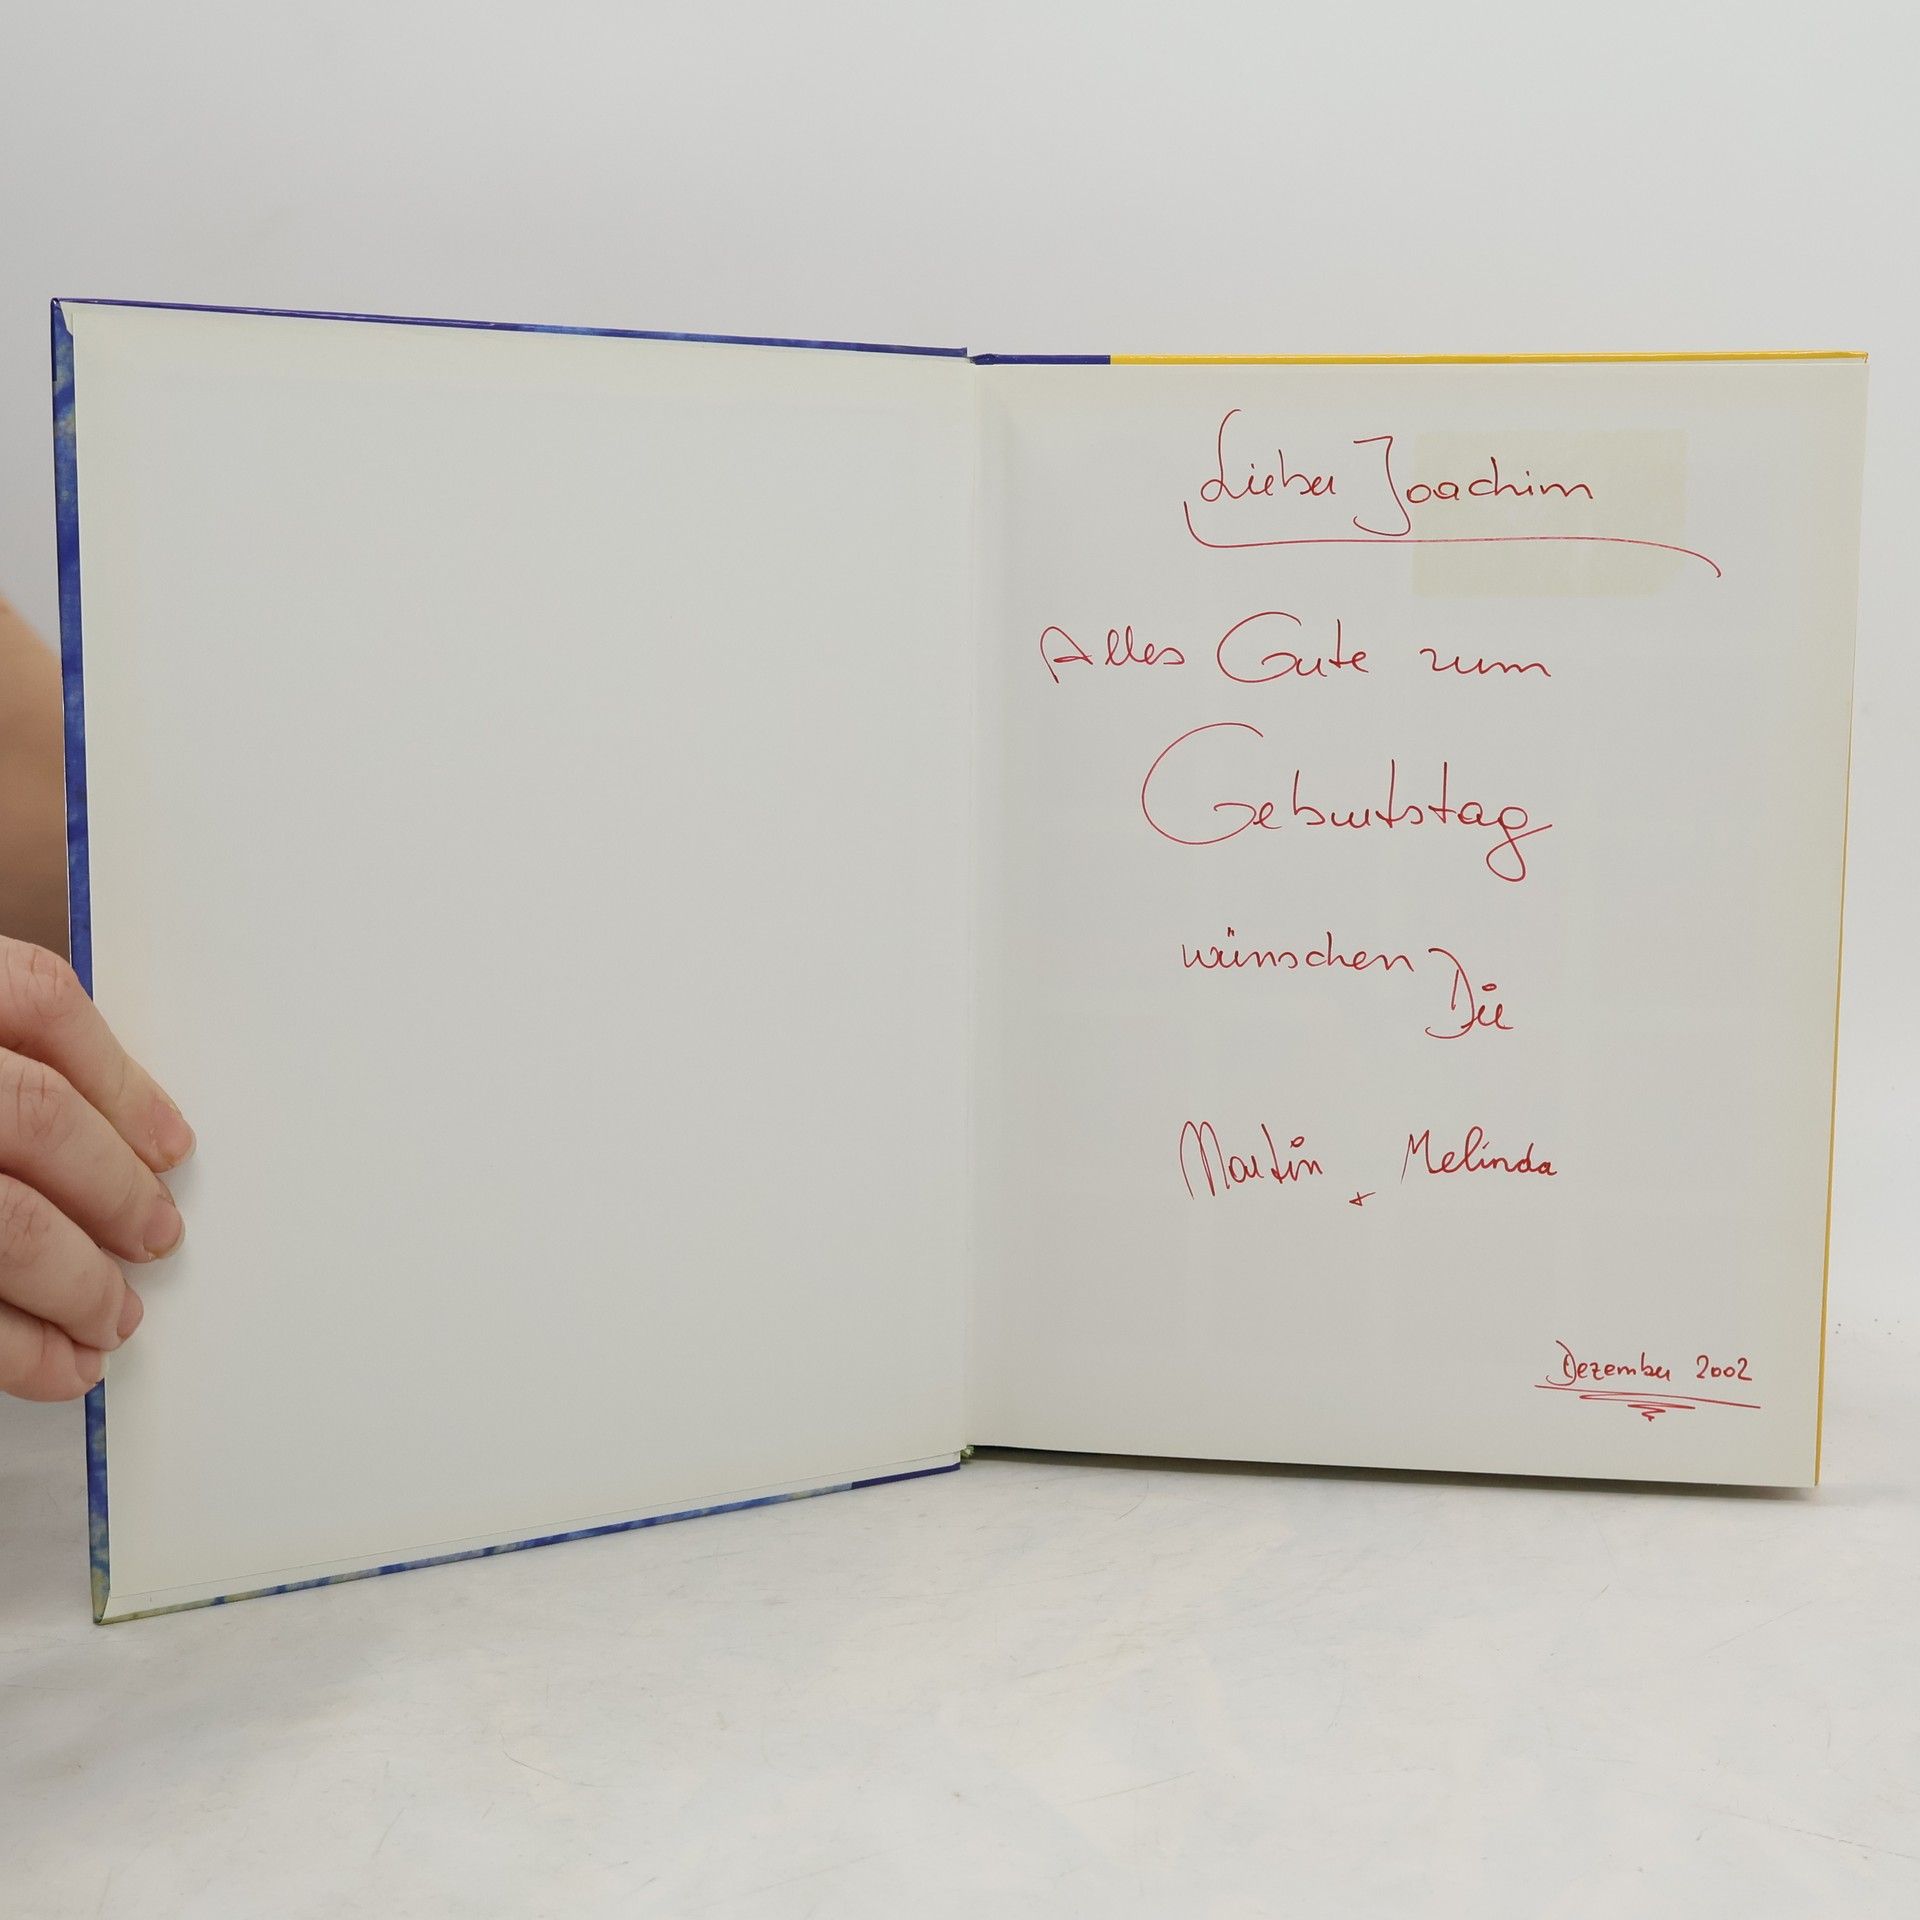 Lieber Joachim
Alles Gute zum
Geburtstag
wünschen Dir
Martin + Melinda
Dezember 2002